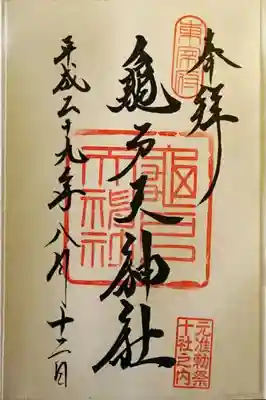 奉拝
東宰府
龜戸天神社
龜戸天神社
元准勅祭
十社之内
平成二十九年八月十二日